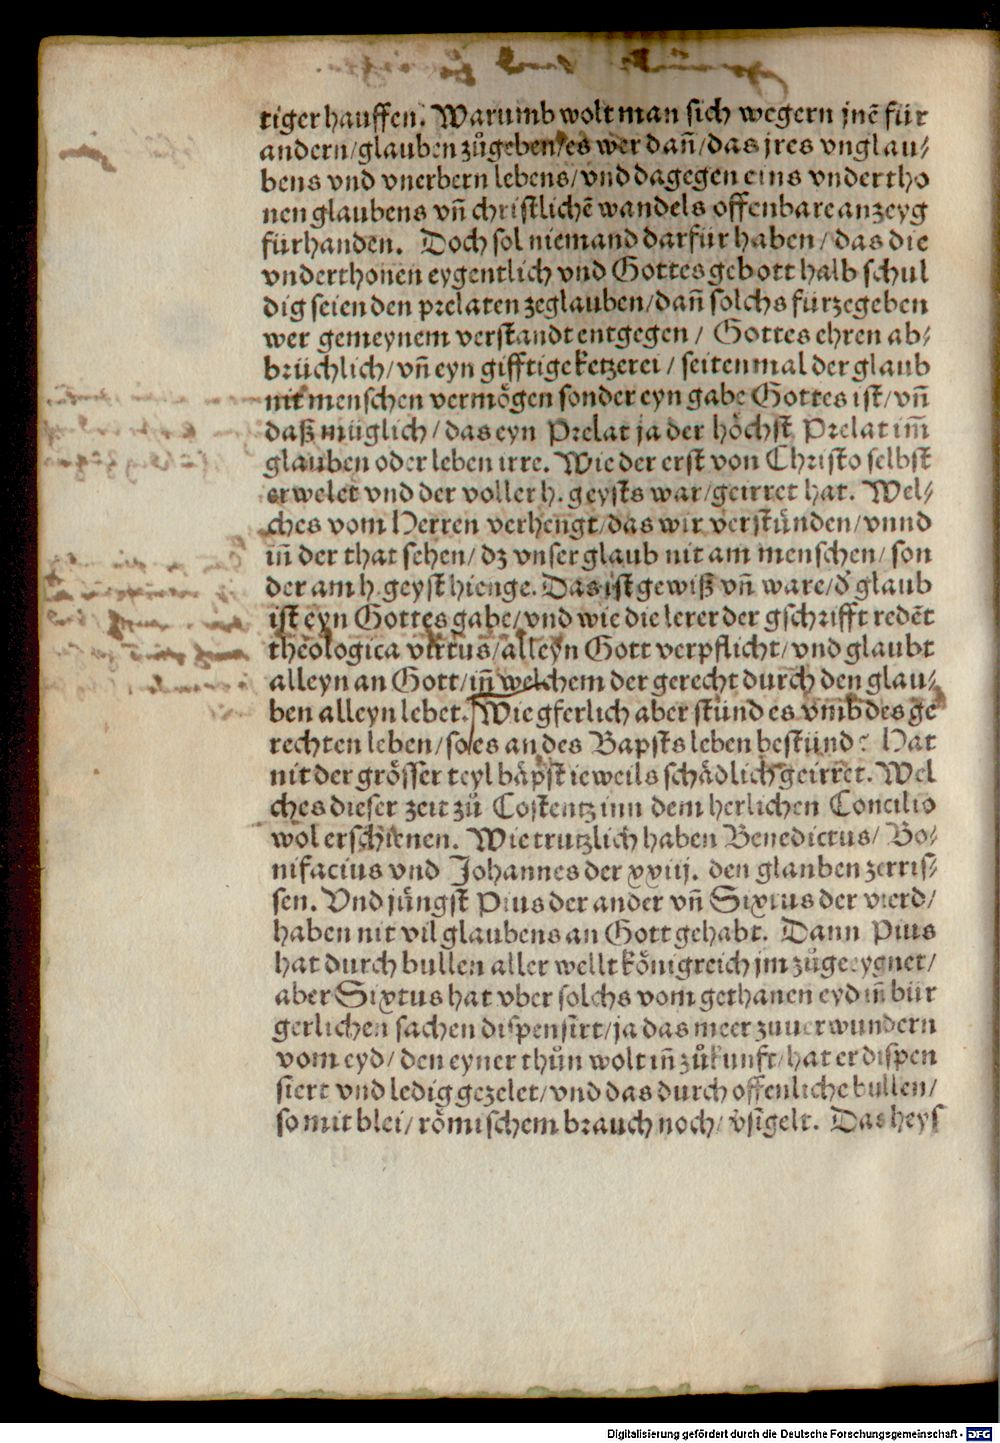 tiger hauffen. Warumb wolt man sich wegern jnē für
andern/glauben zůgeben/es wer dañ/das jres vnglau⸗
bens vnd vnerbern lebens/vnd dagegen eins vndertho
nen glaubens vñ christlichē wandels offenbare anzeyg
fürhanden. Doch sol niemand darfür haben/das die
vnderthonen eygentlich vnd Gottes gebott halb schul
dig seien den prelaten zeglauben/dañ solchs fürzegeben
wer gemeynem verstandt entgegen/ Gottes ehren ab⸗
brüchlich/vñ eyn gifftige ketzerei/ seitenmal der glaub
nit menschen vermögen sonder eyn gabe Gottes ist/vñ
daß müglich/das eyn Prelat ja der höchst Prelat im̃
glauben oder leben irre. Wie der erst von Christo selbst
erwelet vnd der voller h. geysts war/geirret hat. Wel⸗
ches vom Herren verhengt/das wir verstünden/vnnd
iñ der that sehen/dz vnser glaub nit am menschen/son
der am h. geyst hienge. Das ist gewiß vñ ware/đ glaub
ist eyn Gottes gabe/vnd wie die lerer der gschrifft redēt
theologica virtus/alleyn Gott verpflicht/vnd glaubt
alleyn an Gott/iñ welchem der gerecht durch den glau⸗
ben alleyn lebet. Wie gferlich aber stünd es vm̃b des ge
rechten leben/so es an des Bapsts leben bestünd? Hat
nit der grösser teyl bäpst ieweils schädlich geirret. Wel
ches dieser zeit zů Costentz inn dem herlichen Concilio
wol erschienen. Wie trutzlich haben Benedictus/ Bo⸗
nifacius vnd Johannes der xxiij. den glauben zerris⸗
sen. Vnd jüngst Pius der ander vñ Sixtus der vierd/
haben nit vil glaubens an Gott gehabt. Dann Pius
hat durch bullen aller wellt königreich jm zůgeeygnet/
aber Sixtus hat vber solchs vom gethanen eyd iñ bür
gerlichen sachen dispensirt/ja das meer zuuerwundern
vom eyd/ den eyner thůn wolt iñ zůkunft/hat er dispen
siert vnd ledig gezelet/vnd das durch offenliche bullen/
so mit blei/römischem brauch noch/v̈sigelt. Das heys
Digitalisierung gefördert durch die Deutsche Forschungsgemeinschaft - DFG